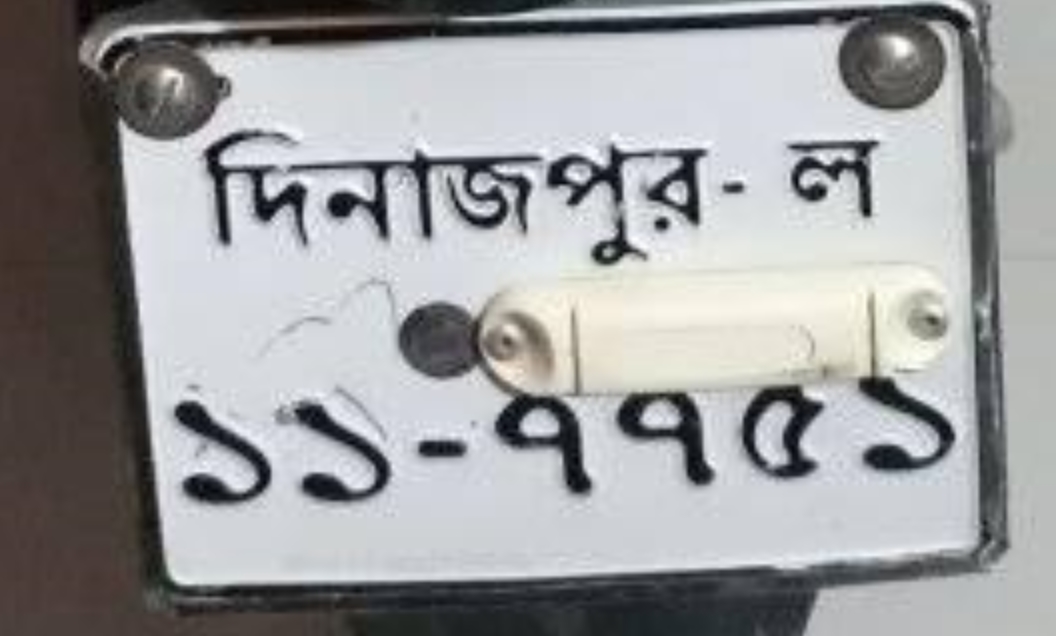 দিনাজপুর- ল
১১-৭৭৫১